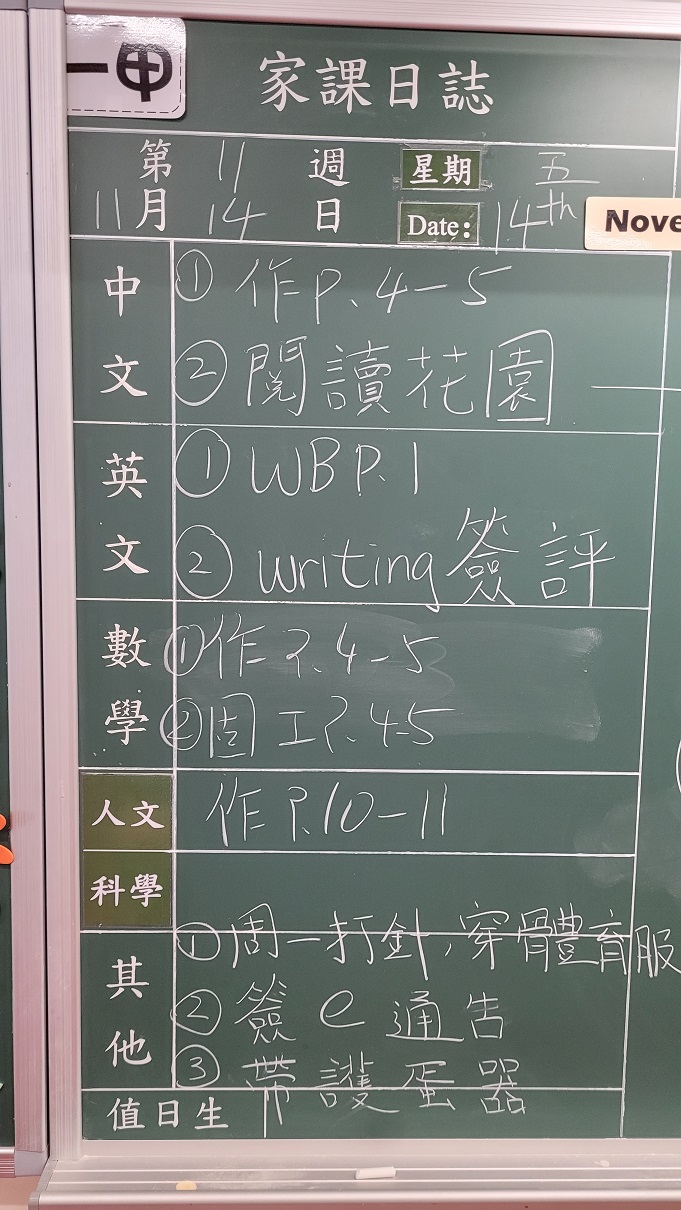 一甲
家課日誌
第 11 週 星期 五
11月 14 日 Date: 14th Nove
中文 ① 作P.4-5
② 閱讀花園
英文 ① WB P.1
② writing 簽評
數學 ① 作P.4-5
② 固工P.4-5
人文 作P.10-11
科學
其他 ① 周一打針,穿體育服
② 簽e通告
③ 帶護蛋器
值日生